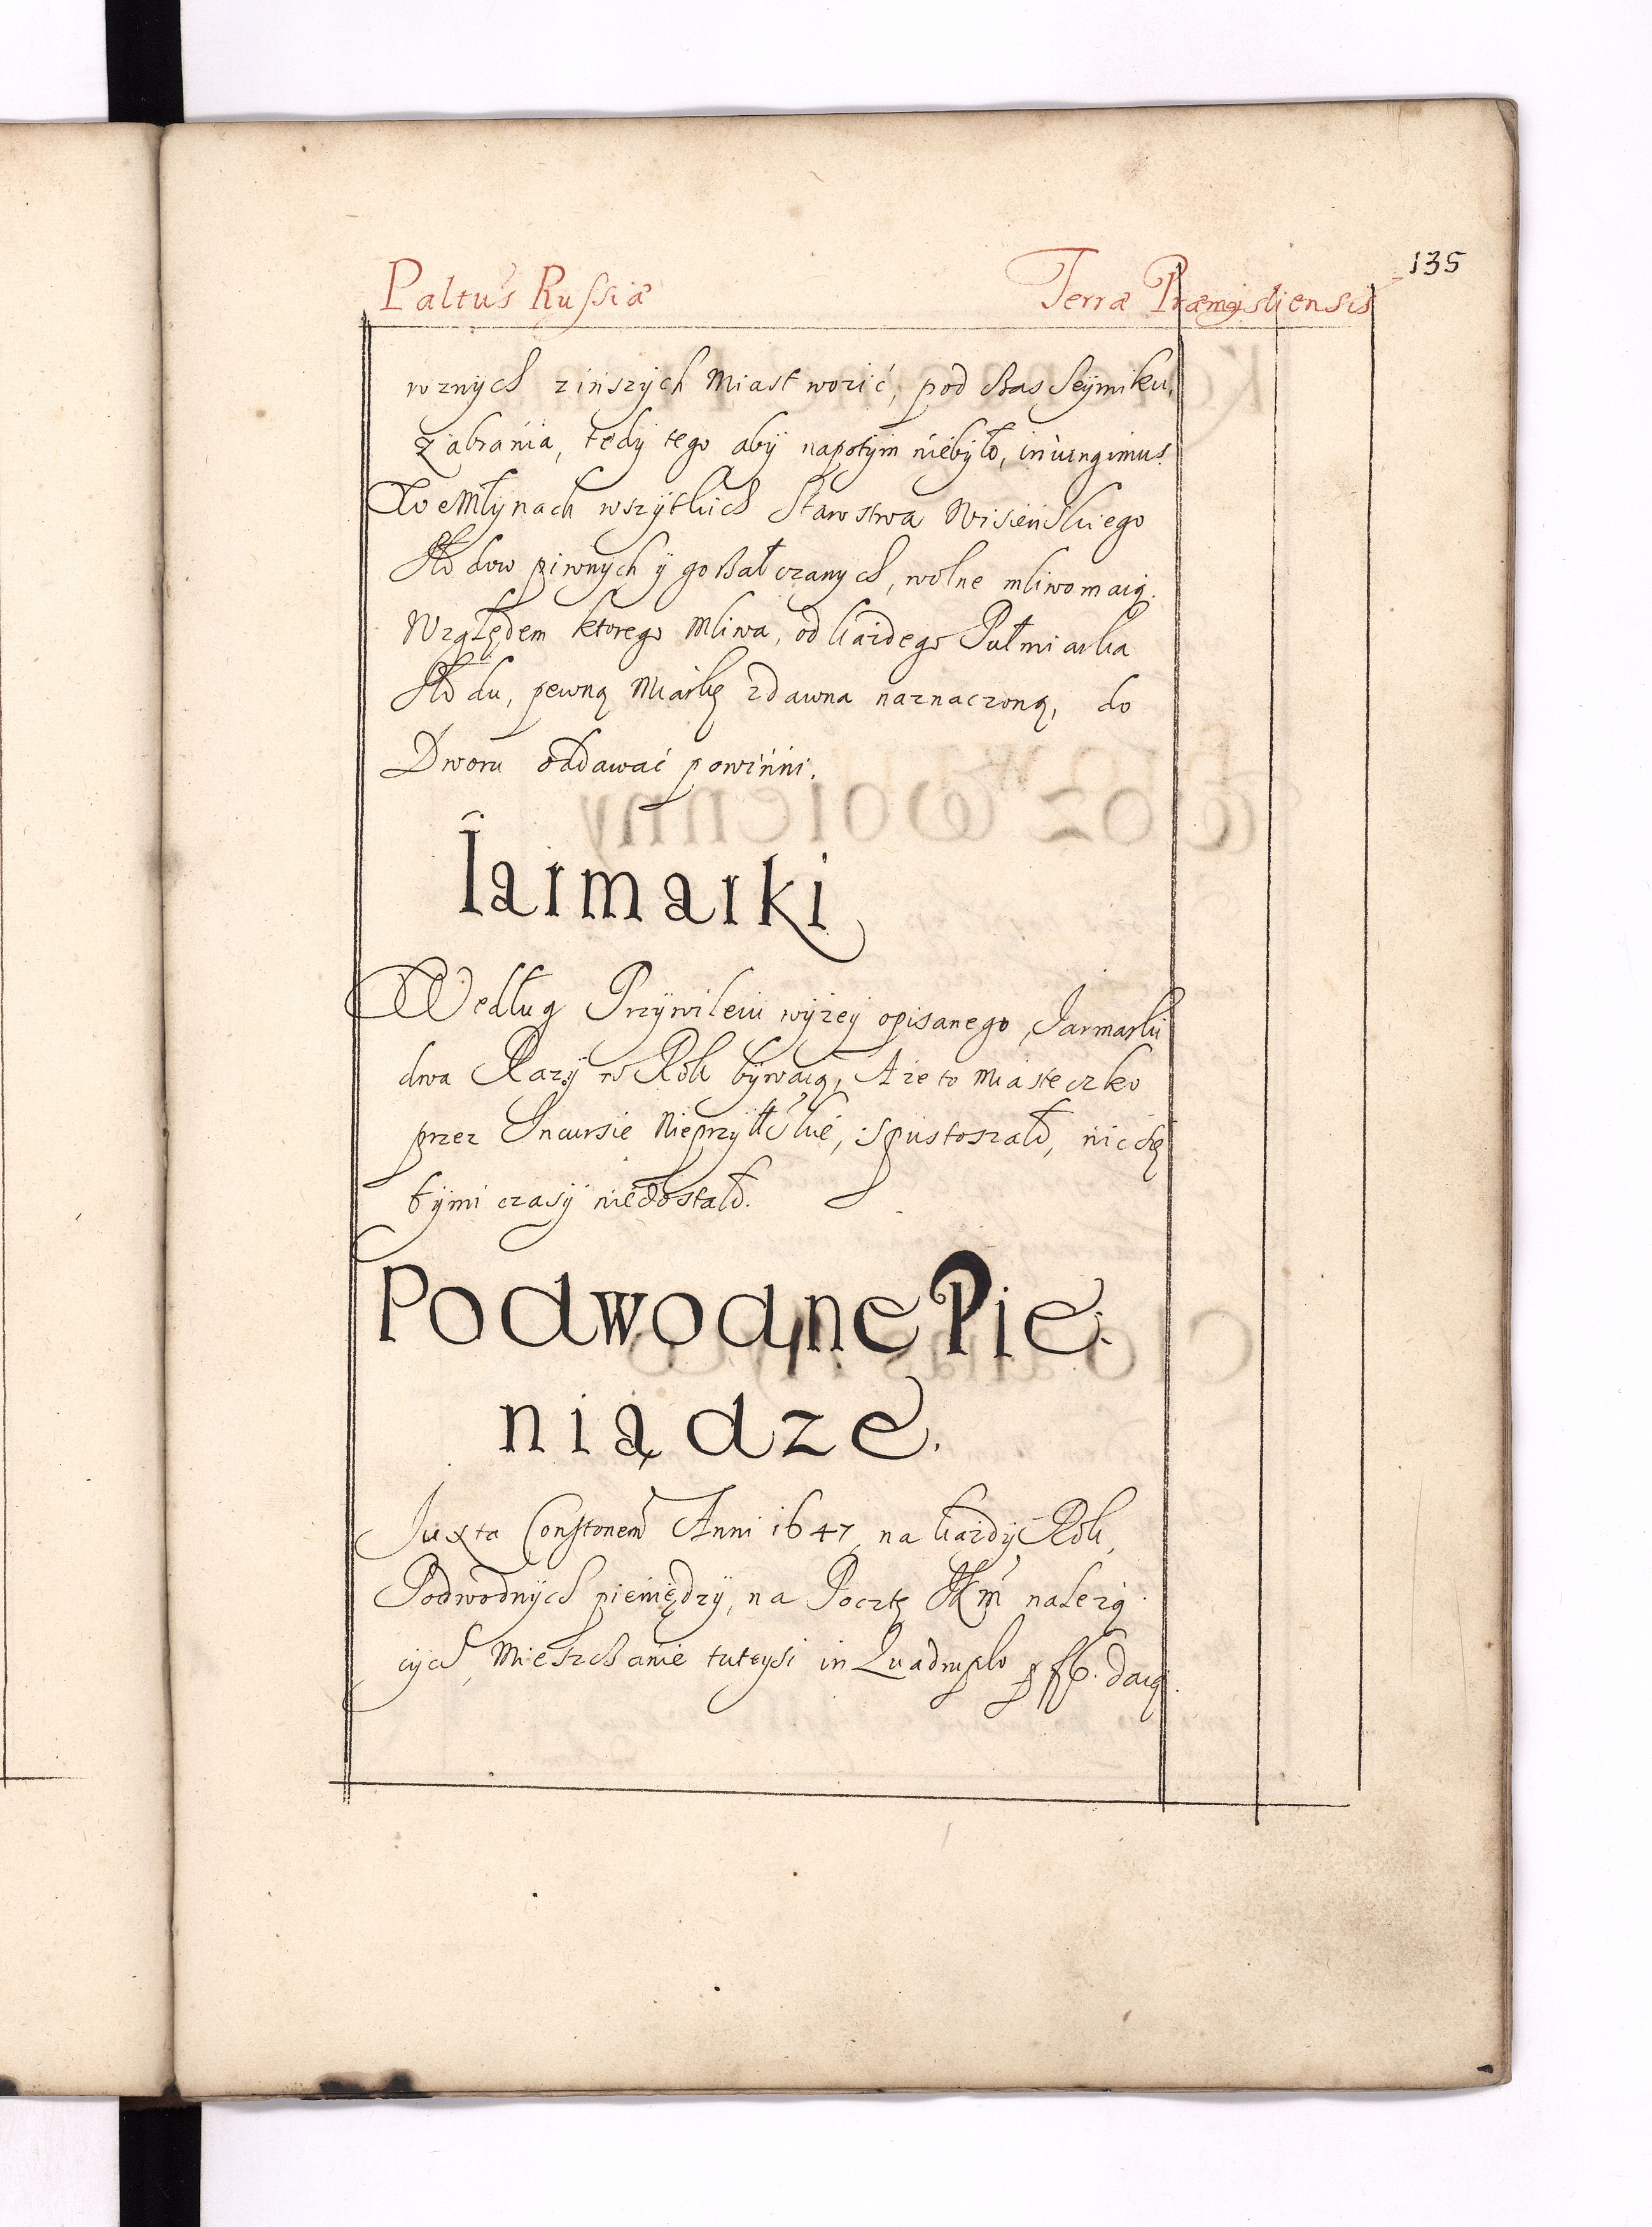 Paltus Russiæ Terræ Præmysliensis 135
roznych zinszych Miast wozić, pod czas Seymiku,
zabrania, tedy tego aby napotym niebyło, iniungimus.
We Młynach wszytkich Starostwa Wisieńskiego
Słodow piwnych y gorzałczanych, wolne mliwo maią.
Względem ktorego Mliwa, od każdego Pułmiarka
Słodu, pewną Miarkę zdawna naznaczoną, do
Dworu oddawać powinni.
Iarmarki
Według Przywileiu wyżey opisanego, Jarmarki
dwa Razy w Rok bywaią, A że to Miasteczko
przez Incursie Nieprzyłskie, spustoszało, nic się
tymi czasy niedostało.
Podwodne Pie:
niądze.
Juxta Constonem Anni 1647 na każdy Rok,
Podwodnych pieniędzy, na Pocztę JKM należą
cych Mieszczanie tuteysi in Quadruplo daią.